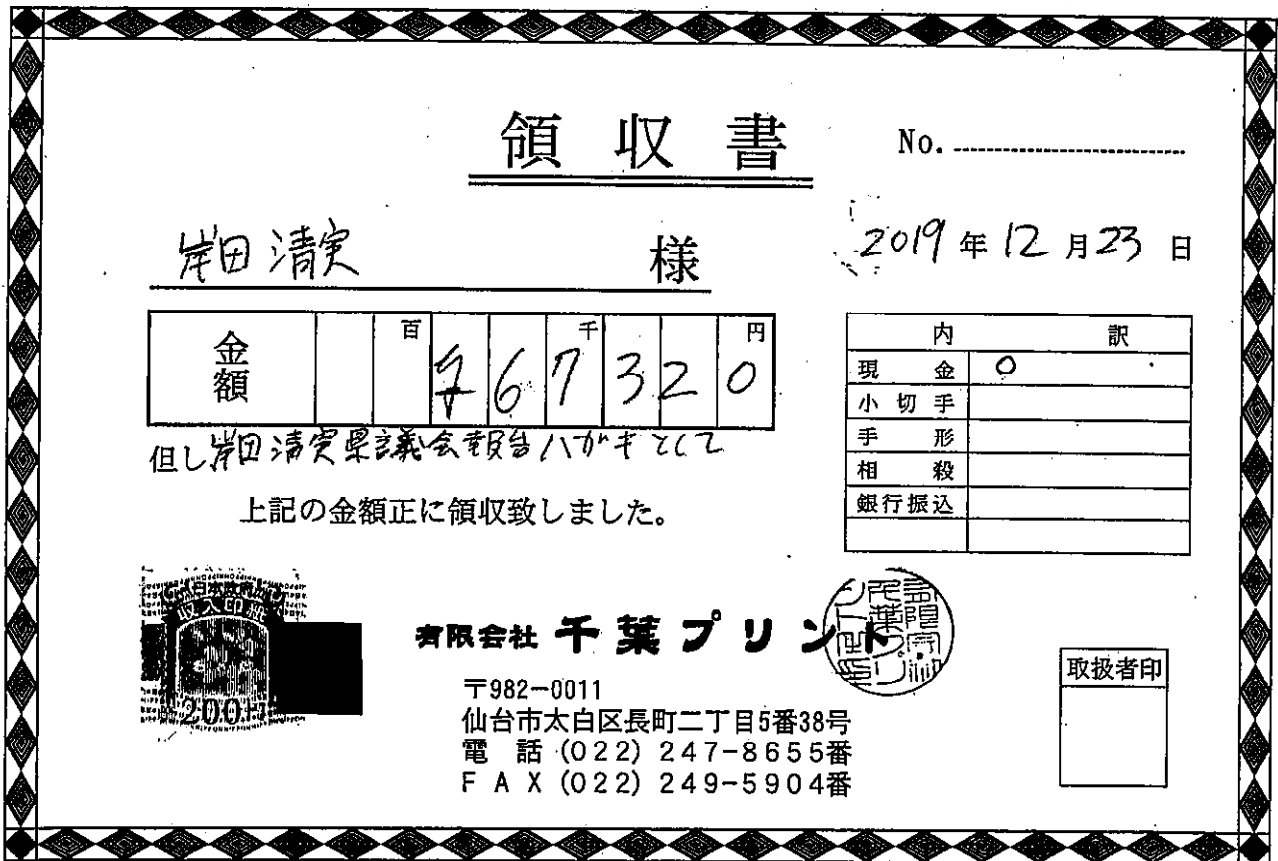 領収書
No.
岸田 清実 様
2019 年 12 月 23 日
金額 百 千 円
¥67320
但し岸田清実県議会報告ハガキとして
上記の金額正に領収致しました。
内 訳
現 金 ○
小 切 手
手 形
相 殺
銀行振込
日本政府
収入印紙
200円
有限会社 千葉プリント
〒982-0011
仙台市太白区長町二丁目5番38号
電 話 (022) 247-8655番
F A X (022) 249-5904番
取扱者印